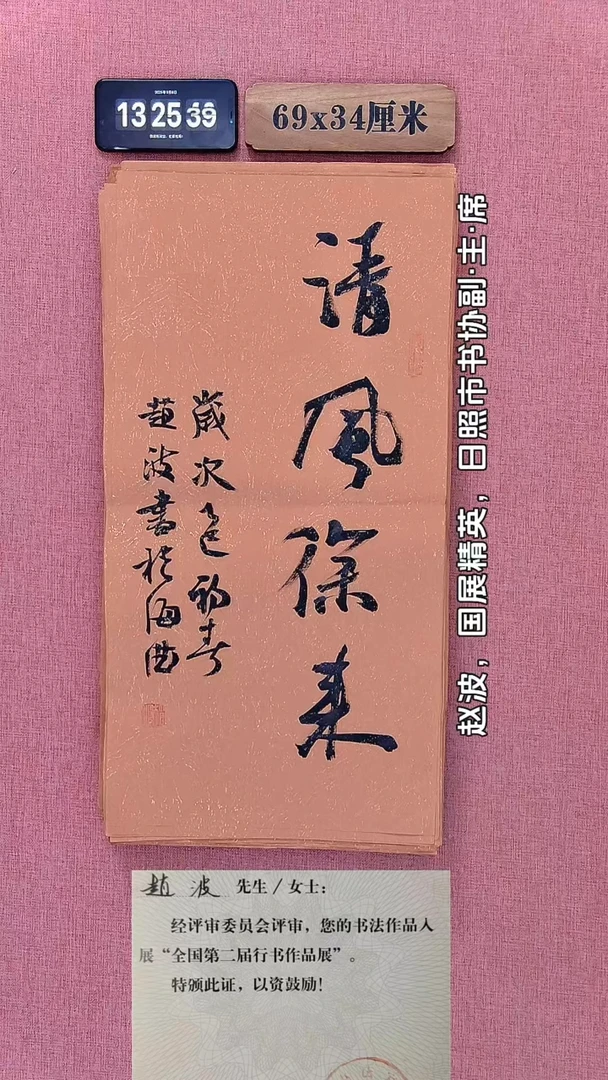 13 25 39
69x34厘米
清風徐来
歲次乙巳初春
趙波書於海曲
赵波，国展精英，日照市书协副·主·席
趙波 先生／女士：
经评审委员会评审，您的书法作品入
展“全国第二届行书作品展”。
特颁此证，以资鼓励！